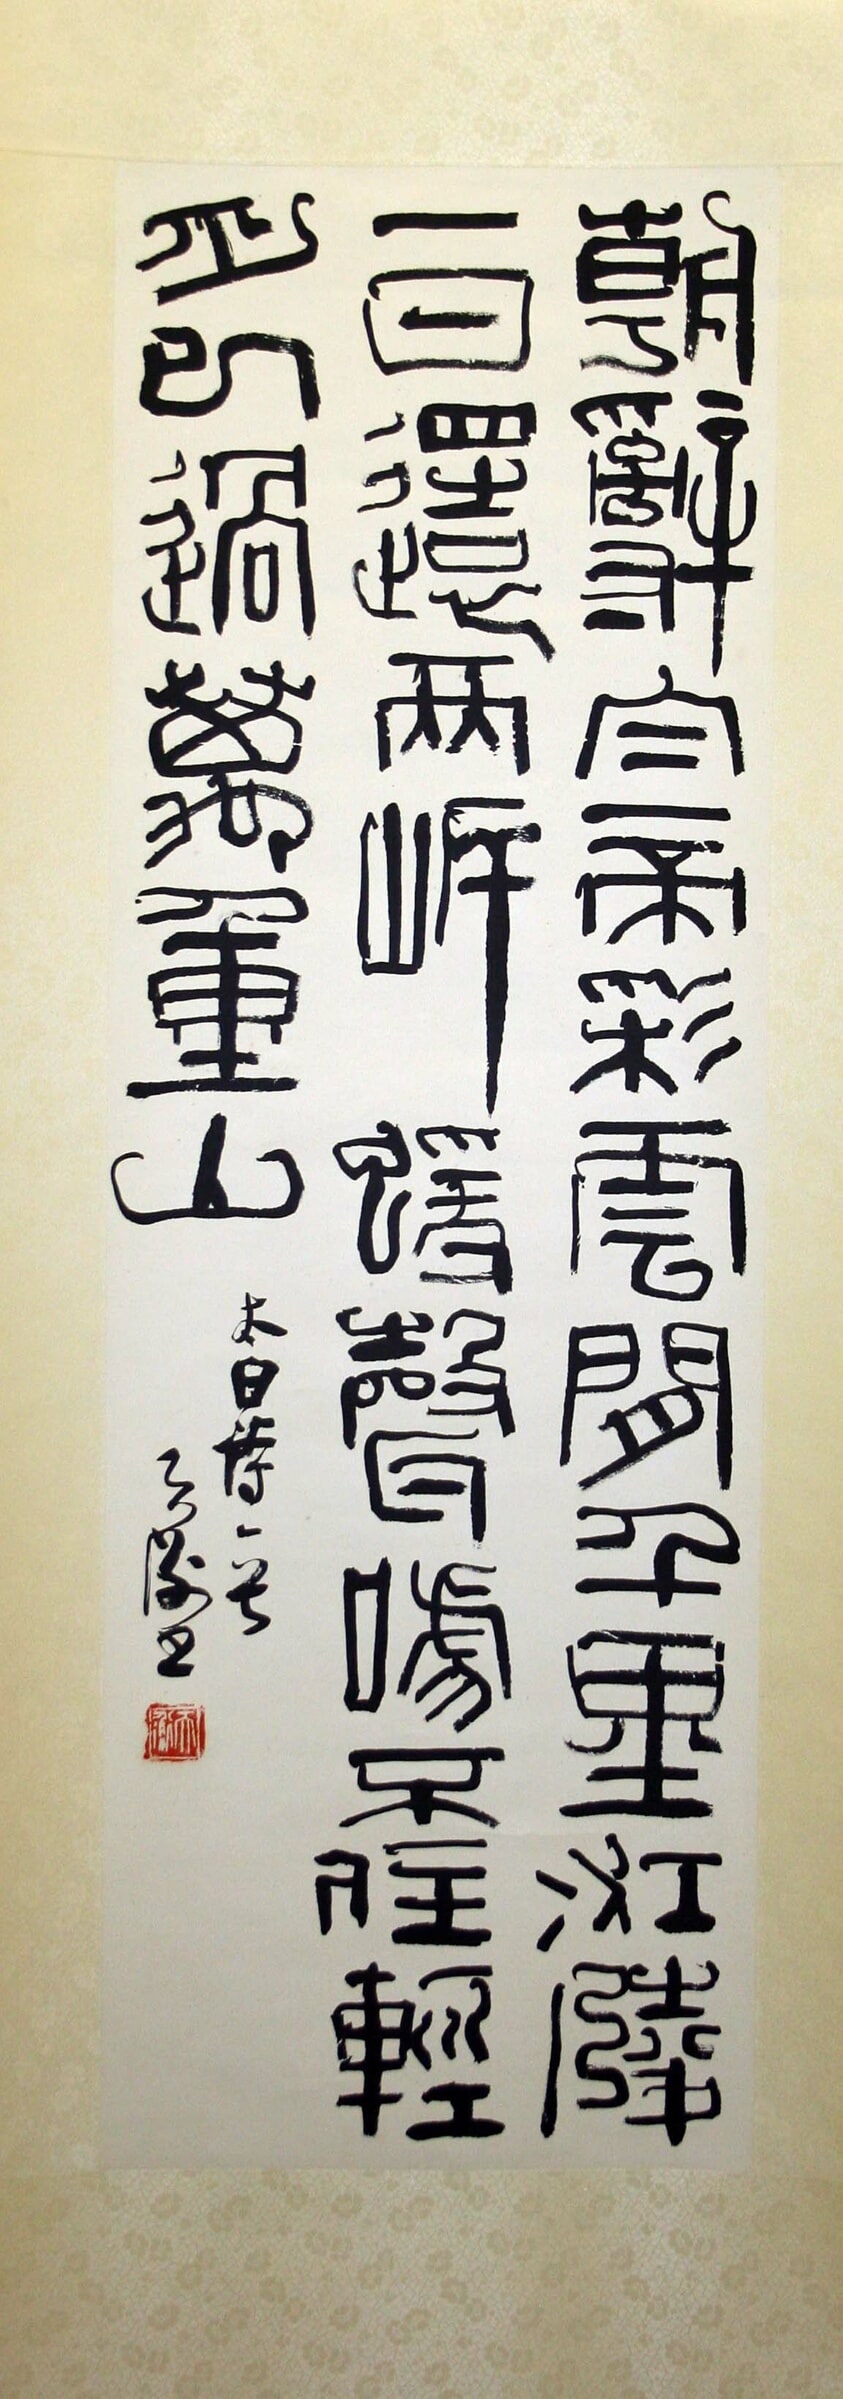 朝辭白帝彩雲間千里江陵
一日還兩岸蝯聲嗁不住輕
舟已過萬重山
太白詩一首